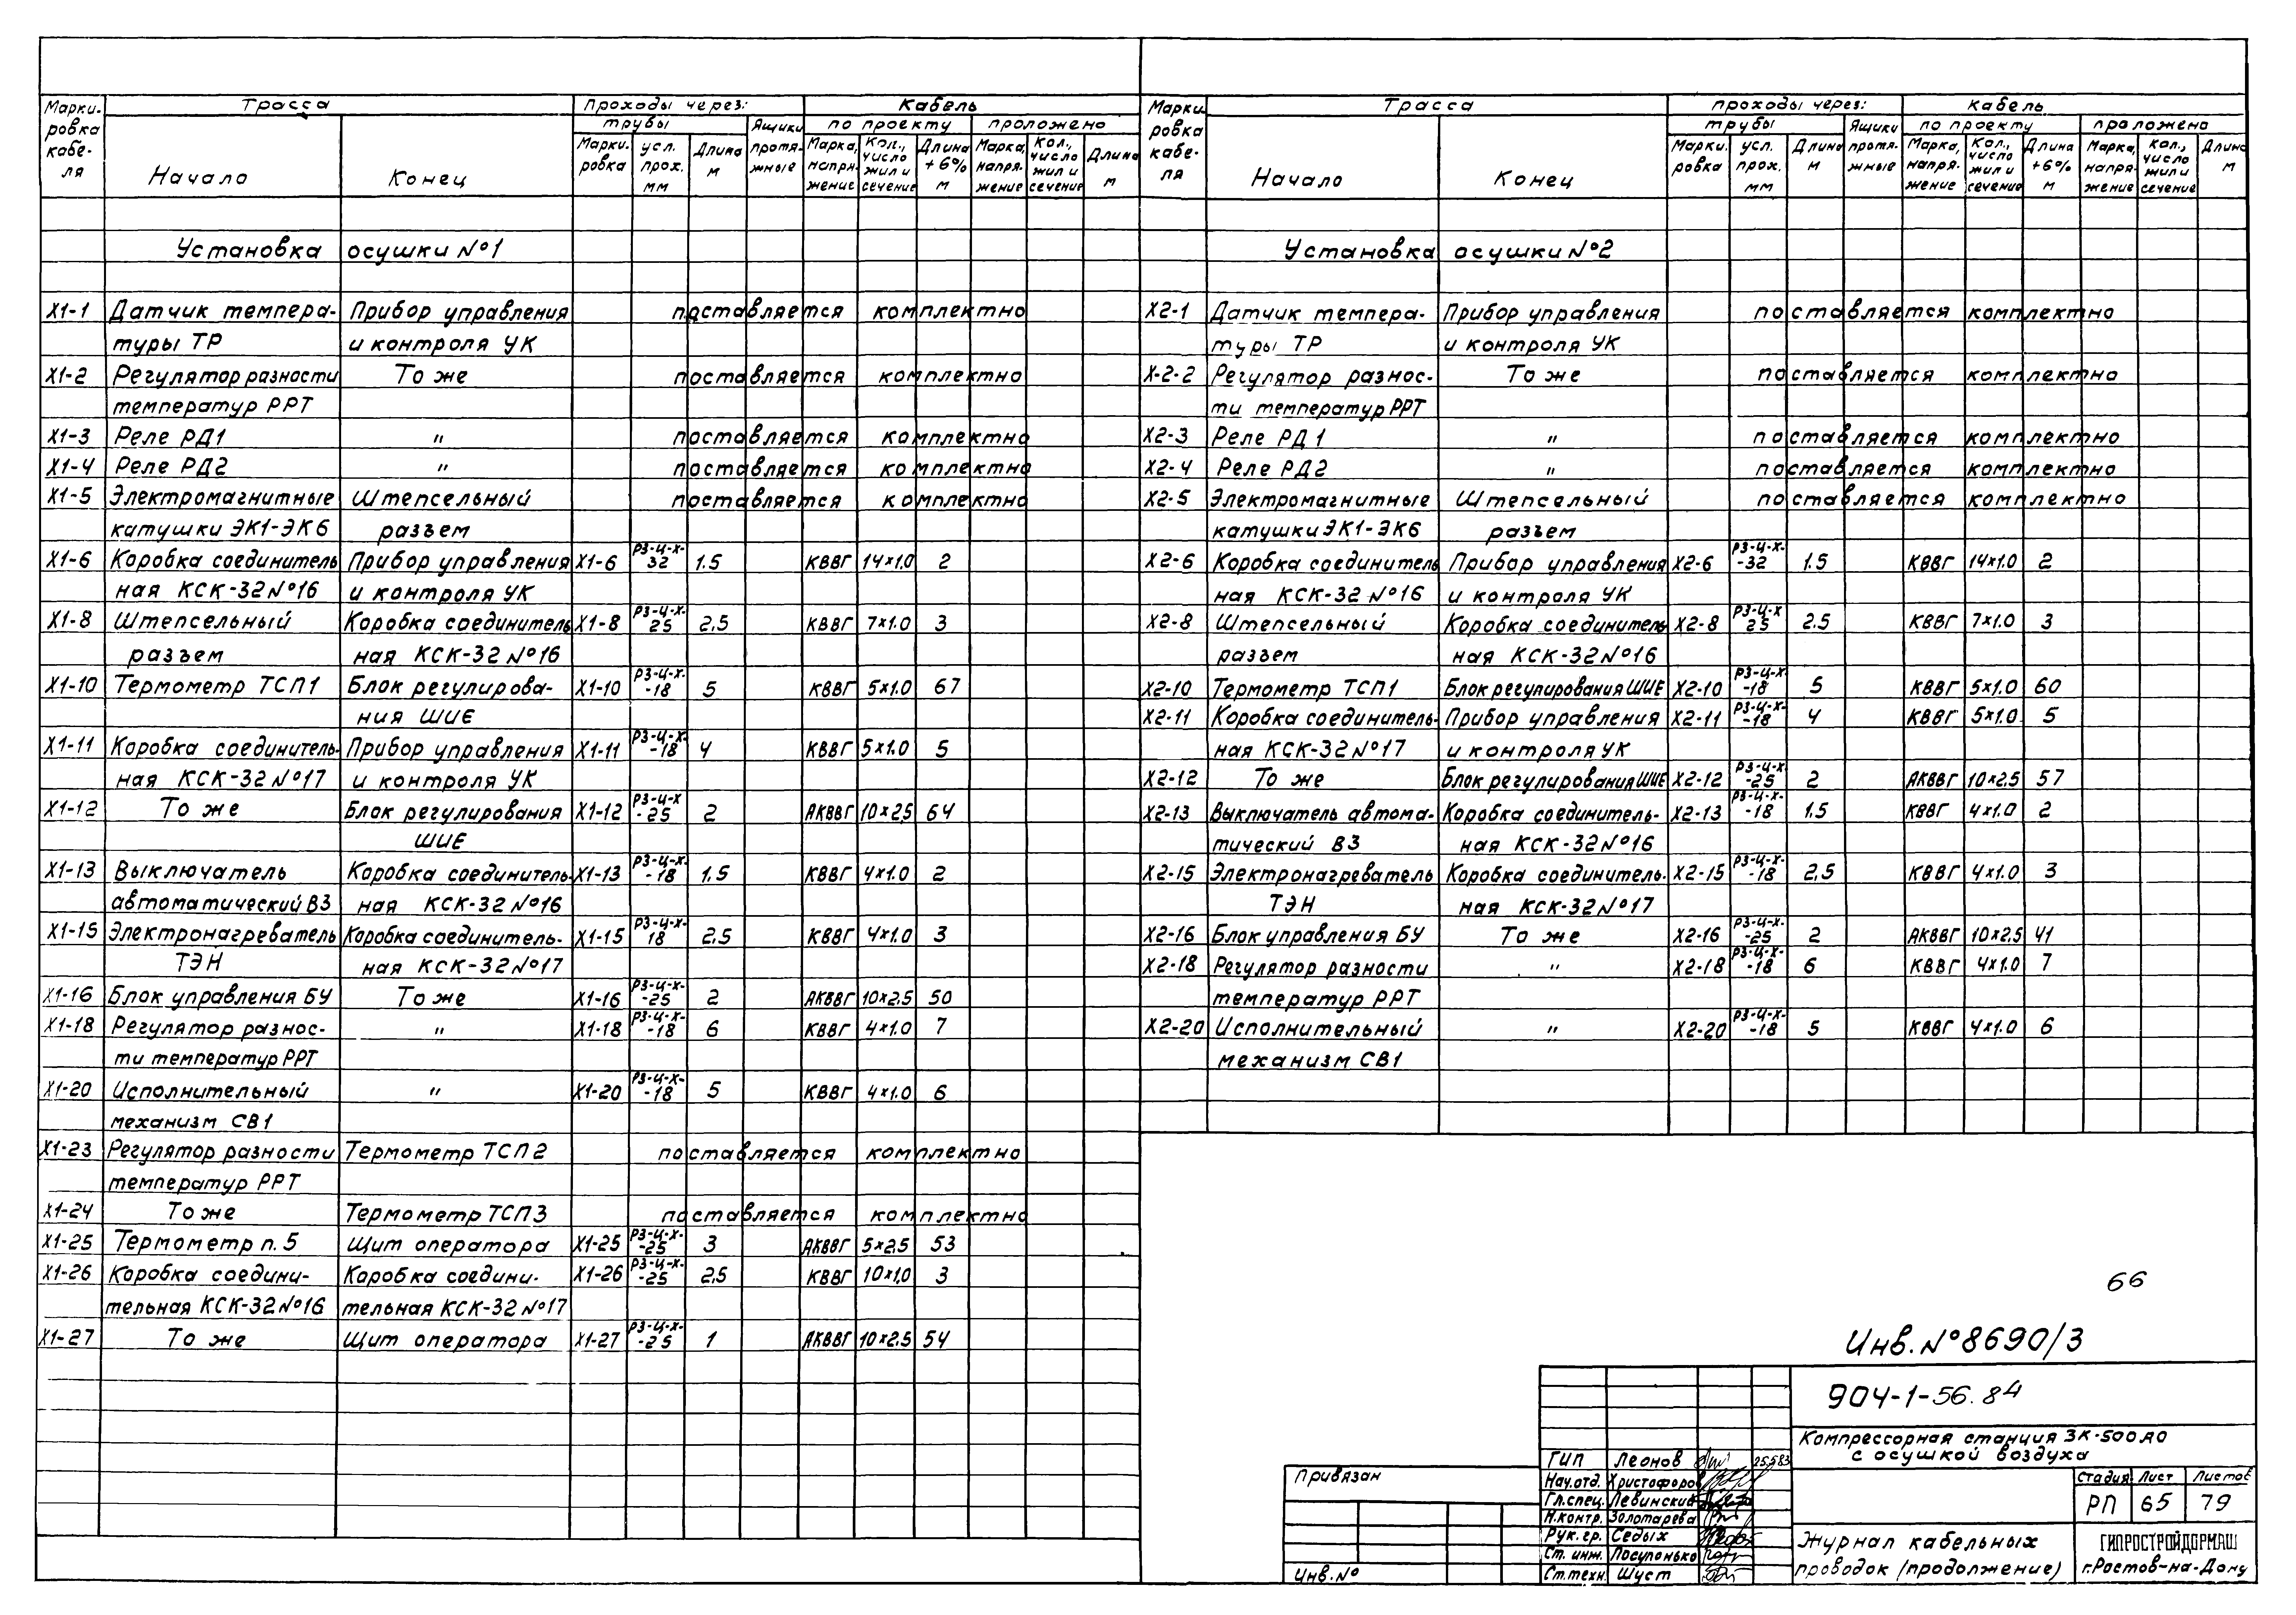 Марки-
ровка
кабе-
ля
Трасса
Начало
Конец
проходы через:
трубы
Марки-
ровка
усл.
прох.
мм
Длина
м
Ящики
протя-
жные
Кабель
по проекту
проложено
Марка,
напря-
жение
Кол.,
число
жил и
сечение
Длина
+6%
м
Марка,
напря-
жение
Кол.,
число
жил и
сечение
Длина
м
Установка осушки №1
X1-1 Датчик темпера- Прибор управления поставляется комплектно
туры ТР и контроля УК
X1-2 Регулятор разности То же поставляется комплектно
температур РРТ
X1-3 Реле РД1 " поставляется комплектно
X1-4 Реле РД2 " поставляется комплектно
X1-5 Электромагнитные Штепсельный поставляется комплектно
катушки ЭК1-ЭК6 разъем
X1-6 Коробка соединитель Прибор управления X1-6 РЗ-Ц-Х-32 1.5 КВВГ 14×1.0 2
ная КСК-32 №16 и контроля УК
X1-8 Штепсельный Коробка соединитель X1-8 РЗ-Ц-Х-25 2.5 КВВГ 7×1.0 3
разъем ная КСК-32 №16
X1-10 Термометр ТСП1 Блок регулирова- X1-10 РЗ-Ц-Х--18 5 КВВГ 5×1.0 67
ния ШИЕ
X1-11 Коробка соединитель- Прибор управления X1-11 РЗ-Ц-Х--18 4 КВВГ 5×1.0 5
ная КСК-32 №17 и контроля УК
X1-12 То же Блок регулирования X1-12 РЗ-Ц-Х-25 2 АКВВГ 10×2.5 64
ШИЕ
X1-13 Выключатель Коробка соединитель- X1-13 РЗ-Ц-Х--18 1.5 КВВГ 4×1.0 2
автоматический В3 ная КСК-32 №16
X1-15 Электронагреватель Коробка соединитель- X1-15 РЗ-Ц-Х-18 2.5 КВВГ 4×1.0 3
ТЭН ная КСК-32 №17
X1-16 Блок управления БУ То же X1-16 РЗ-Ц-Х--25 2 АКВВГ 10×2.5 50
X1-18 Регулятор разнос- " X1-18 РЗ-Ц-Х--18 6 КВВГ 4×1.0 7
ти температур РРТ
X1-20 Исполнительный " X1-20 РЗ-Ц-Х--18 5 КВВГ 4×1.0 6
механизм СВ1
X1-23 Регулятор разности Термометр ТСП2 поставляется комплектно
температур РРТ
X1-24 То же Термометр ТСП3 поставляется комплектно
X1-25 Термометр п.5 Щит оператора X1-25 РЗ-Ц-Х--25 3 АКВВГ 5×2.5 53
X1-26 Коробка соедини- Коробка соедини- X1-26 РЗ-Ц-Х--25 2.5 КВВГ 10×1.0 3
тельная КСК-32 №16 тельная КСК-32 №17
X1-27 То же Щит оператора X1-27 РЗ-Ц-Х--25 1 АКВВГ 10×2.5 54
Марки
ровка
кабе-
ля
Трасса
Начало
Конец
проходы через:
трубы
Марки-
ровка
усл.
прох.
мм
Длина
м
Ящики
протя-
жные
Кабель
по проекту
проложено
Марка,
напря-
жение
Кол.,
число
жил и
сечение
Длина
+6%
м
Марка,
напря-
жение
Кол.,
число
жил и
сечение
Длина
м
Установка осушки №2
X2-1 Датчик темпера- Прибор управления поставляется комплектно
туры ТР и контроля УК
X-2-2 Регулятор разнос- То же поставляется комплектно
ти температур РРТ
X2-3 Реле РД1 " поставляется комплектно
X2-4 Реле РД2 " поставляется комплектно
X2-5 Электромагнитные Штепсельный поставляется комплектно
катушки ЭК1-ЭК6 разъем
X2-6 Коробка соединитель Прибор управления X2-6 РЗ-Ц-Х--32 1.5 КВВГ 14×1.0 2
ная КСК-32 №16 и контроля УК
X2-8 Штепсельный Коробка соединитель X2-8 РЗ-Ц-Х 25 2.5 КВВГ 7×1.0 3
разъем ная КСК-32 №16
X2-10 Термометр ТСП1 Блок регулирования ШИЕ X2-10 РЗ-Ц-Х--18 5 КВВГ 5×1.0 60
X2-11 Коробка соединитель- Прибор управления X2-11 РЗ-Ц-Х--18 4 КВВГ 5×1.0 5
ная КСК-32 №17 и контроля УК
X2-12 То же Блок регулирования ШИЕ X2-12 РЗ-Ц-Х-25 2 АКВВГ 10×2.5 57
X2-13 Выключатель автома- Коробка соединитель- X2-13 РЗ-Ц-Х--18 1.5 КВВГ 4×1.0 2
тический В3 ная КСК-32 №16
X2-15 Электронагреватель Коробка соединитель- X2-15 РЗ-Ц-Х--18 2.5 КВВГ 4×1.0 3
ТЭН ная КСК-32 №17
X2-16 Блок управления БУ То же X2-16 РЗ-Ц-Х--25 2 АКВВГ 10×2.5 41
X2-18 Регулятор разности " X2-18 РЗ-Ц-Х--18 6 КВВГ 4×1.0 7
температур РРТ
X2-20 Исполнительный " X2-20 РЗ-Ц-Х--18 5 КВВГ 4×1.0 6
механизм СВ1
66
Инв. №8690/3
904-1-56.84
Компрессорная станция 3К-500 АО
с осушкой воздуха
ГИП Леонов 25.5.83
Нач.отд. Христофоров
Гл.спец. Левинский
Н.контр. Золотарева
Рук.гр. Седых
Ст. инж. Посупонько
Ст.техн. Шуст
Привязан
Инв.№
Стадия Лист Листов
РП 65 79
Журнал кабельных
проводок (продолжение)
ГИПРОСТРОЙДОРМАШ
г.Ростов-на-Дону